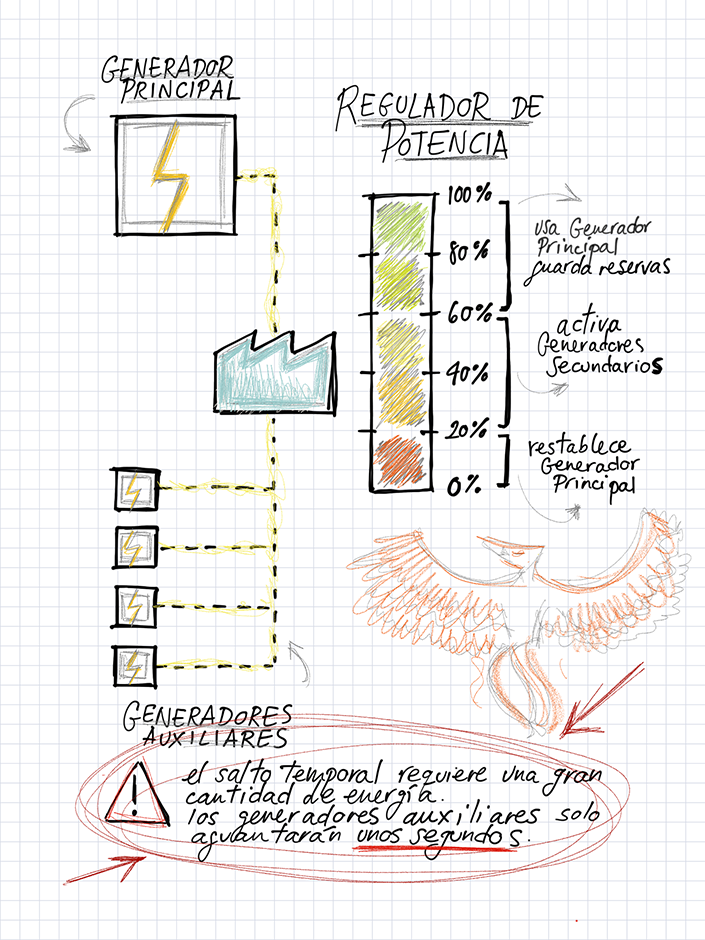 GENERADOR
PRINCIPAL
REGULADOR DE
POTENCIA
100%
80%
60%
40%
20%
0%
usa Generador
Principal
guarda reservas
activa
Generadores
Secundarios
restablece
Generador
Principal
GENERADORES
AUXILIARES
el salto temporal requiere una gran
cantidad de energía.
los generadores auxiliares solo
aguantarán unos segundos.